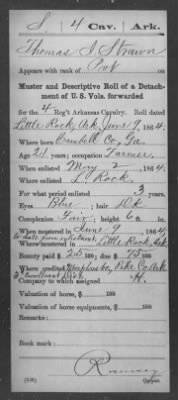 S. | 4 Cav. | Ark.
Thomas J. Strawn
Appears with rank of Pvt
Muster and Descriptive Roll of a Detach-
ment of U. S. Vols. forwarded
for the 4 Reg't Arkansas Cavalry. Roll dated
Little Rock, Ark June 9, 1864.
Where born Campbell Co, Ga.
Age 21 years; occupation Farmer.
When enlisted May 2, 1864.
Where enlisted L. Rock.
For what period enlisted 3 years.
Eyes Blue; hair Dk
Complexion Fair; height 6 ft. in.
When mustered in June 9, 1864.
to date from enlistment
Where mustered in Little Rock, Ark
Bounty paid $ 25 100; due $ 75 100
Where credited Pike Co, Ark.
Company to which assigned H.
Valuation of horse, $ 100
Valuation of horse equipments, $ 100
Remarks:
Book mark:
Ramsey
(339) Copyist.